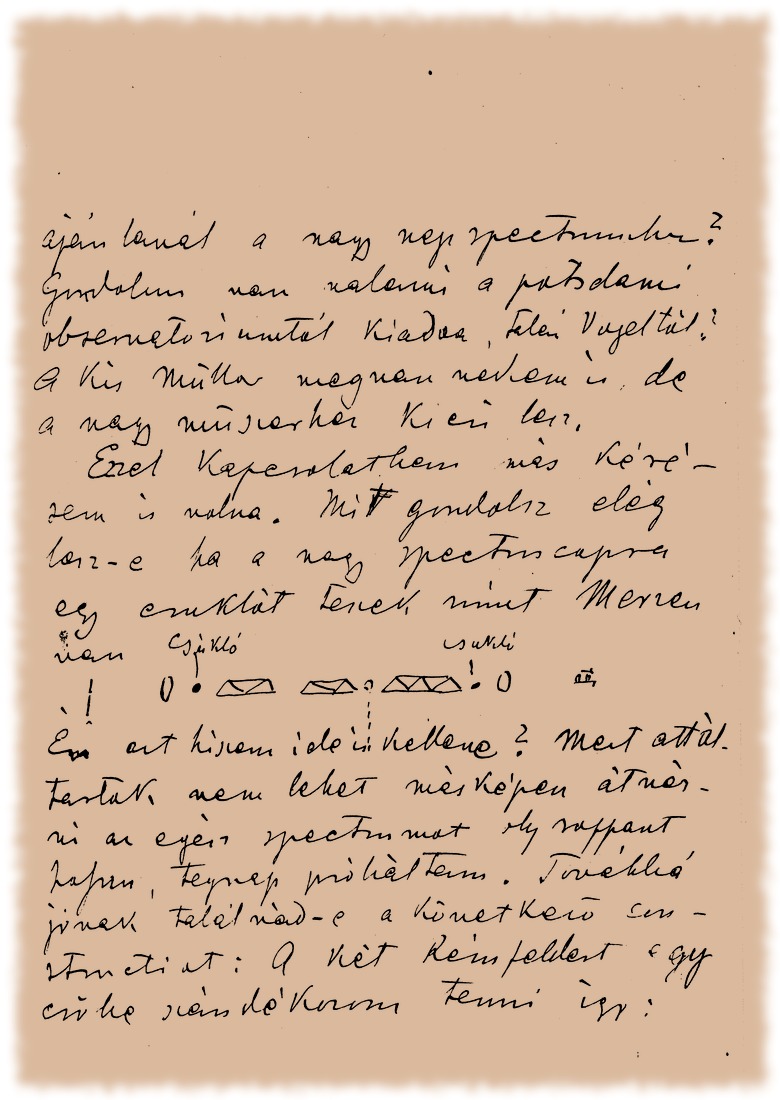 ajánlanál a nagy nap spectrumhoz?
Gondolom van valami a potsdami
observatoriumtól kiadva, talán Vogeltől?
A kis Müller megvan nekem is, de
a nagy műszerhez kicsi lesz.
Ezzel kapcsolatban más kéré-
sem is volna. Mit gondolsz elég
lesz-e ha a nagy spectroscopra
egy csuklót teszek mint Merzen
van csukló csukló
Én azt hiszem ide is kellene? Mert attól
tartok nem lehet másképen átnéz-
ni az egész spectrumot oly roppant
hosszu, tegnap próbáltam. Továbbá
jónak találnád-e a következő con-
structiot: A két
csőbe szándékozom tenni így: